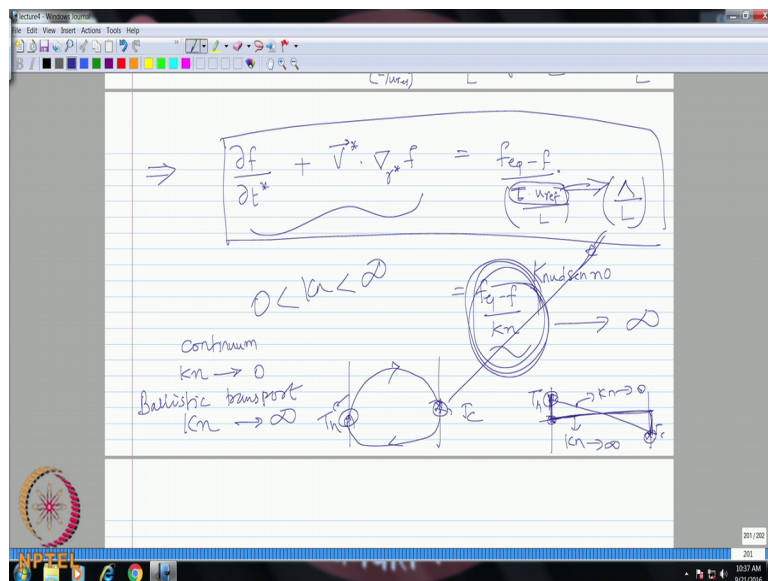 lecture4 - Windows Journal
File Edit View Insert Actions Tools Help
B I
⇒ ∂f/∂t* + V⃗* · ∇r* f = (feq - f) / (τ · uref / L) → (Λ/L)
Knudsen no
0 < Kn < ∞
= (feq - f) / Kn → ∞
continuum
Kn → 0
Ballistic transport
Kn → ∞
Th Tc
Th Kn → 0
Kn → ∞ Tc
201 / 202
201
NPTEL
10:37 AM
9/21/2016